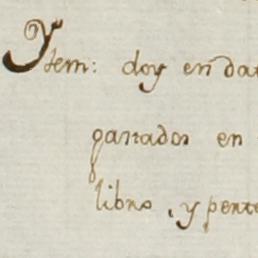 Ytem: doy en dat
gastados en
libro, y pert